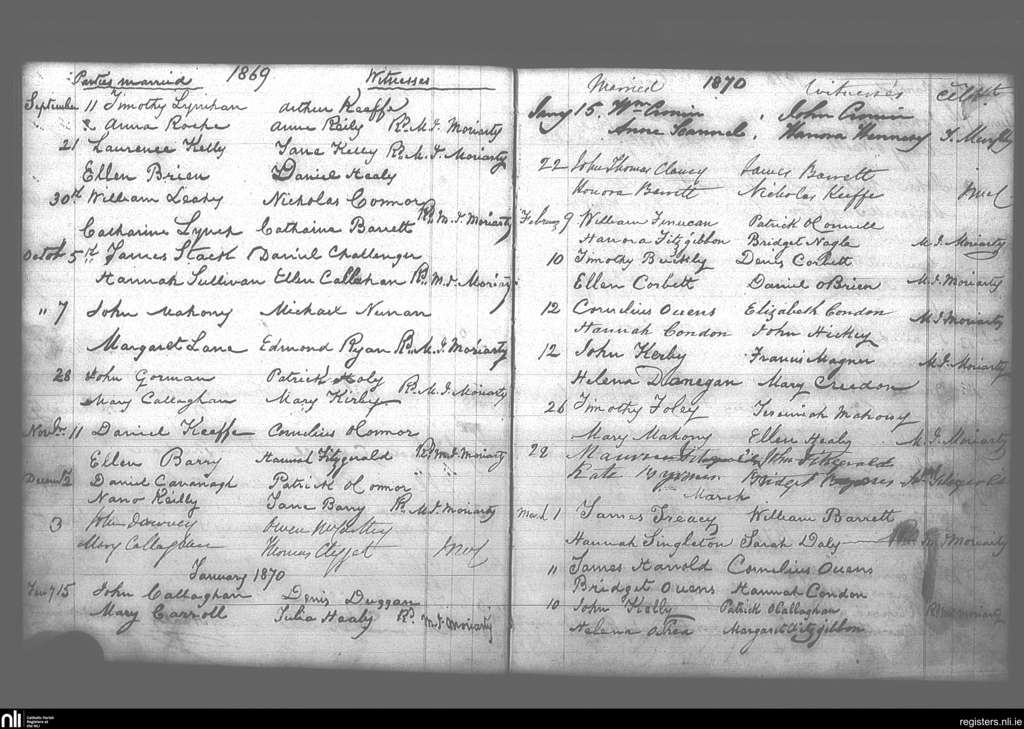 Parties married 1869 Witnesses
September 11 Timothy Lynehan Arthur Keaffe
& Anna Roche Anne Reily Rd. M. J. Moriarty
21 Laurence Kelly Jane Kelly Rd. M. J. Moriarty
Ellen Brien Daniel Healy
30th William Leahy Nicholas Connor Rd. M. J. Moriarty
Catharine Lynch Cathaine Barrett
Octob 5th James Stack Daniel Challenger
Hannah Sullivan Ellen Callaghan Rd. M. J. Moriarty
" 7 John Mahony Michael Nunan
Margaret Lane Edmond Ryan Rd. M. J. Moriarty
28 John Gorman Patrick Foly
Mary Callaghan Mary Kirby Rd. M. J. Moriarty
Novbr. 11 Daniel Keaffe Cornelius OConnor
Ellen Barry Hannah Fitzgerald Rd. M. J. Moriarty
Decem 2 Daniel Cavanagh Patrick OConnor
Nano Reilly Jane Barry Rd. M. J. Moriarty
3 John Downey Owen
Mary Callaghan Thomas
January 1870
15 John Callaghan Denis Duggan
Mary Carroll Julia Healy Rd. M. J. Moriarty
Married 1870 Witnesses
Jany 15. Wm Cronin John Cronin
Anne Scannel Hanora Hennessy J. Murphy
22 John Thomas Clancy James Barrett
Honora Barrett Nicholas Keeffe
Februay 9 William Finucan Patrick OConnell
Hanora Fitzgibbon Bridget Nagle M. J. Moriarty
10 Timothy Buckley Denis Corbett
Ellen Corbett Daniel OBrien M. J. Moriarty
12 Cornelius Owens Elizabeth Condon
Hannah Condon John Hickey M. J. Moriarty
12 John Kerby Francis Magner
Helena Danegan Mary Creedon M. J. Moriarty
26 Timothy Foley Jeremiah Mahony
Mary Mahony Ellen Healy M. J. Moriarty
28 Maurice John Fitzgerald
Kate Bridget
March
March 1 James Treacy William Barrett
Hannah Singleton Sarah Daly M. J. Moriarty
" James Harrold Cornelius Owens
Bridget Owens Hannah Condon
10 John Kelly Patrick OCallaghan
Helena OShea Margaret Fitzgibbon
nli Catholic Parish Registers at the NLI
registers.nli.ie